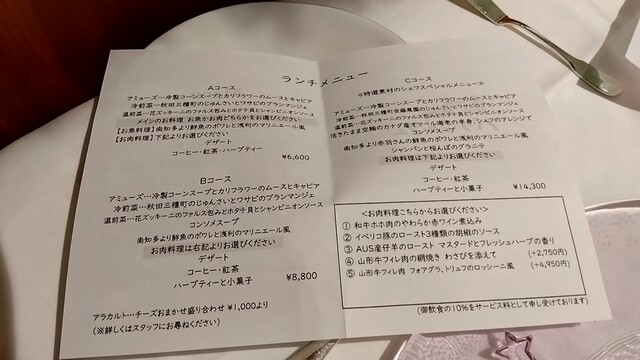 ランチメニュー
Aコース
アミューズ…冷製コーンスープとカリフラワーのムースとキャビア
冷前菜…秋田三種町のじゅんさいとワサビのブランマンジェ
温前菜…花ズッキーニのファルス包みとホタテ貝とシャンピニオンソース
メインのお料理 お魚かお肉どちらかをお選びください
【お魚料理】南知多より鮮魚のポワレと浅利のマリニエール風
【お肉料理】下記よりお選びください
デザート
コーヒー・紅茶・ハーブティー
¥6,600
Bコース
アミューズ…冷製コーンスープとカリフラワーのムースとキャビア
冷前菜…秋田三種町のじゅんさいとワサビのブランマンジェ
温前菜…花ズッキーニのファルス包みとホタテ貝とシャンピニオンソース
コンソメスープ
南知多より鮮魚のポワレと浅利のマリニエール風
お肉料理は右記よりお選びください
デザート
コーヒー・紅茶
ハーブティーと小菓子
¥8,800
アラカルト…チーズおまかせ盛り合わせ ¥1,000より
(※詳しくはスタッフにお尋ねください)
Cコース
≪特選素材のシェフスペシャルメニュー≫
アミューズ…冷製コーンスープとカリフラワーのムースとキャビア
冷前菜…秋田三種町安藤農園のじゅんさいとワサビのブランマンジェ
温前菜…花ズッキーニのファルス包みとホタテ貝とシャンピニオンソース
活きたまま空輸のカナダ産オマール海老の半身、シェフのアレンジで
コンソメスープ
南知多より赤羽さんの鮮魚のポワレと浅利のマリニエール風
シャンパンと桜んぼのグラニテ
お肉料理は下記よりお選びください
デザート
コーヒー・紅茶
ハーブティーと小菓子
¥14,300
<お肉料理こちらからお選びください>
① 和牛ホホ肉のやわらか赤ワイン煮込み
② イベリコ豚のロースト3種類の胡椒のソース
③ AUS産仔羊のロースト マスタードとフレッシュハーブの香り
④ 山形牛フィレ肉の網焼き わさびを添えて (+2,750円)
⑤ 山形牛フィレ肉 フォアグラ、トリュフのロッシーニ風 (+4,950円)
(御飲食の10%をサービス料として申し受けております)